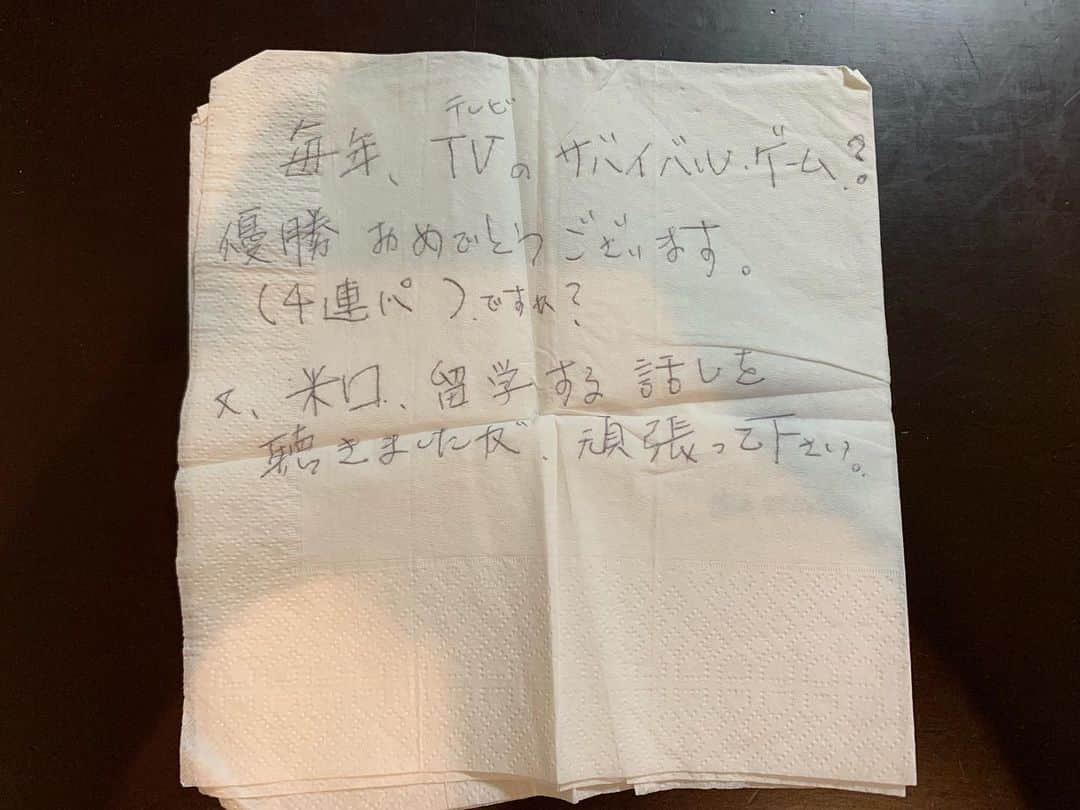 テレビ
毎年、TVのサバイバル・ゲーム?
優勝おめでとうございます。
(4連パ)ですね?
又、米口、留学する話しを
聴きましたが、頑張って下さい。